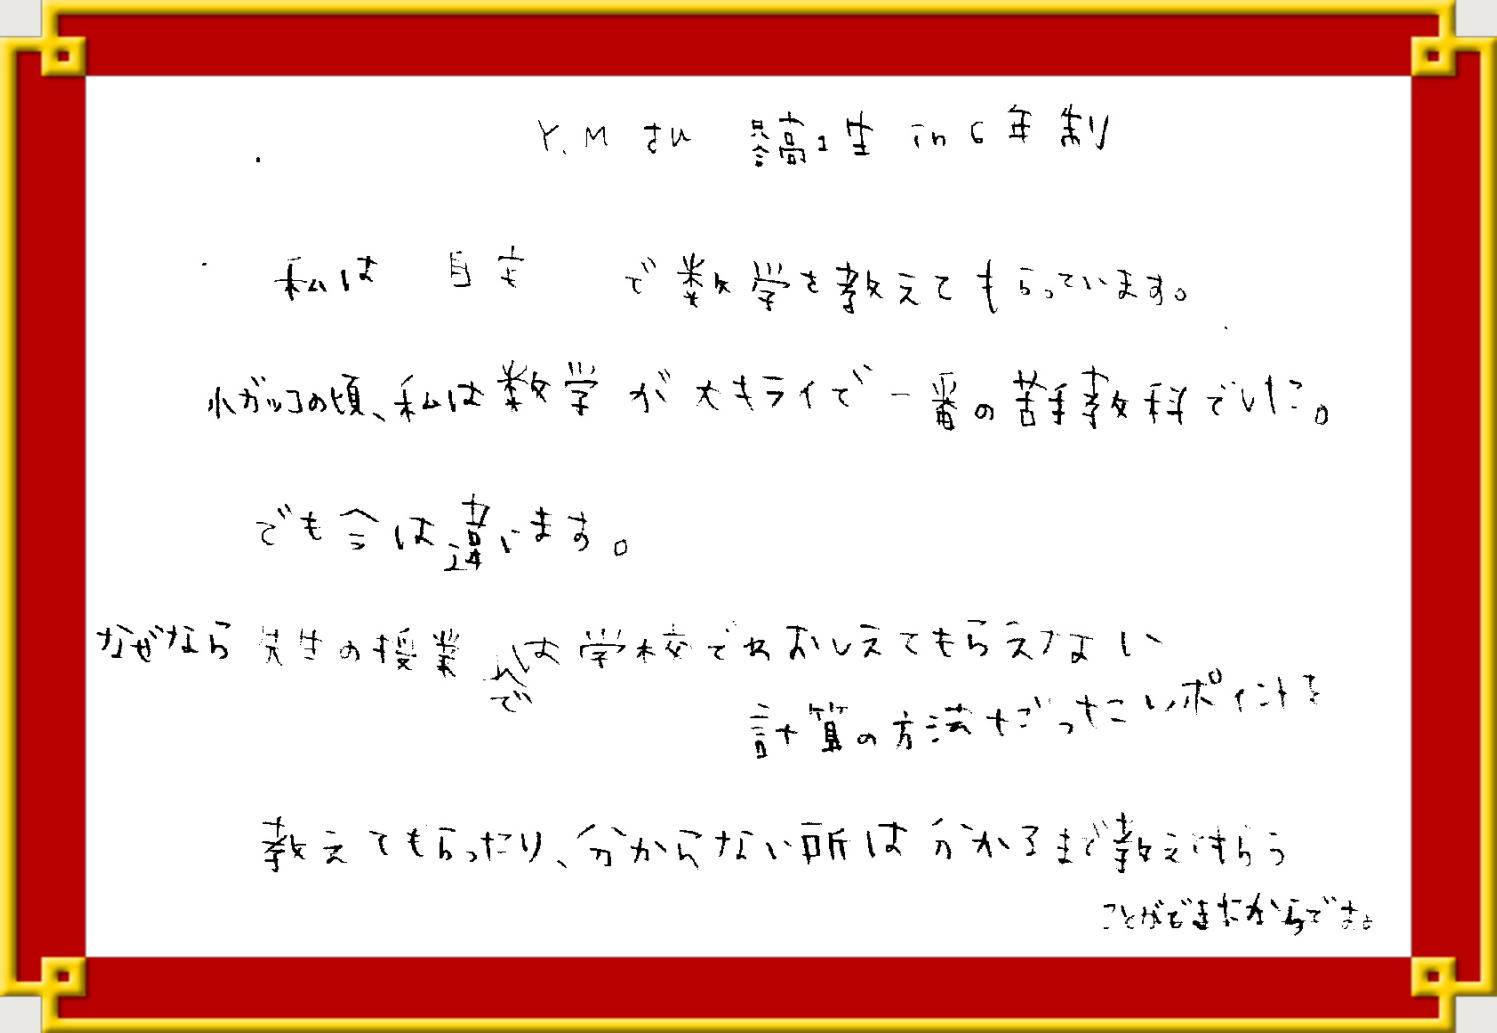 Y.Mさん 高1生 in 6年制
私は 自宅 で数学を教えてもらっています。
小ガッコの頃、私は数学が大キライで一番の苦手教科でした。
でも今は違います。
なぜなら先生の授業では学校でわおしえてもらえない
計算の方法だったりポイントを
教えてもらったり、分からない所は分かるまで教えてもらう
ことができたからです。